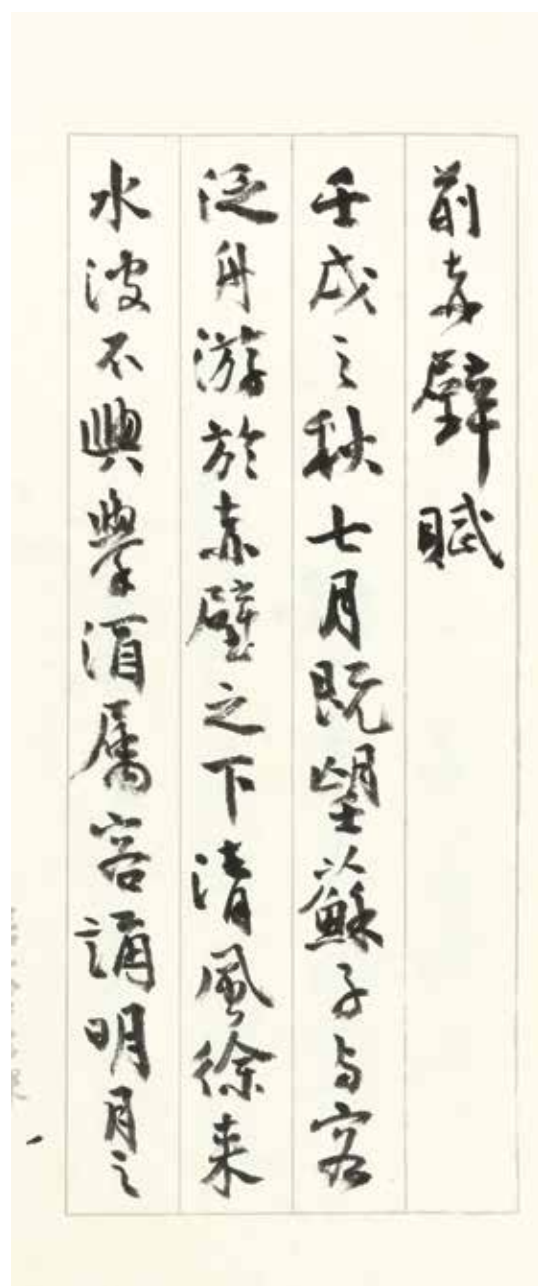 前赤壁賦
壬戌之秋七月既望蘇子与客
泛舟游於赤壁之下清風徐来
水波不興舉酒属客誦明月之